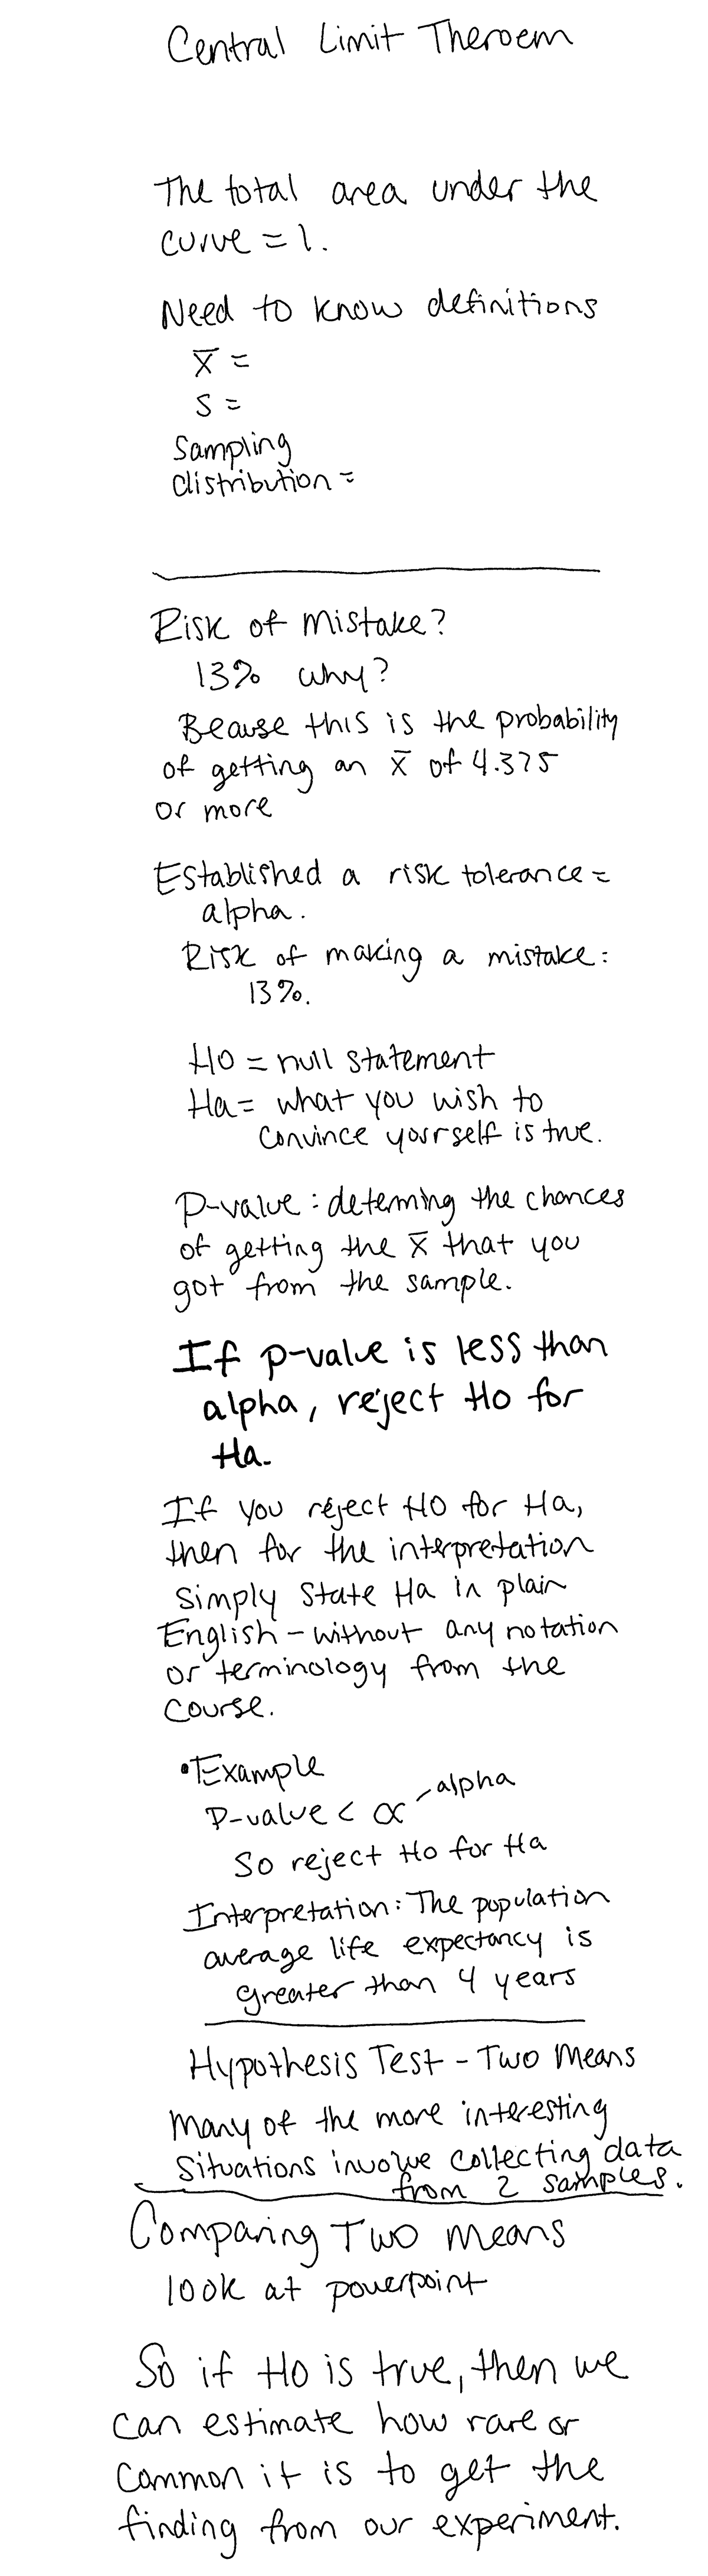 Central Limit Theroem
The total area under the
curve = 1.
Need to know definitions
x̄ =
s =
Sampling
distribution =
Risk of mistake?
13% why?
Beause this is the probability
of getting an x̄ of 4.375
or more
Established a risk tolerance =
alpha.
Risk of making a mistake:
13%.
Ho = null statement
Ha = what you wish to
convince yourself is true.
P-value : determing the chances
of getting the x̄ that you
got from the sample.
If p-value is less than
alpha, reject Ho for
Ha.
If you reject Ho for Ha,
then for the interpretation
simply state Ha in plain
English - without any notation
or terminology from the
course.
• Example
P-value < α - alpha
So reject Ho for Ha
Interpretation: The population
average life expectancy is
greater than 4 years
Hypothesis Test - Two Means
Many of the more interesting
situations involve collecting data
from 2 samples.
Comparing Two means
look at powerpoint
So if Ho is true, then we
can estimate how rare or
common it is to get the
finding from our experiment.